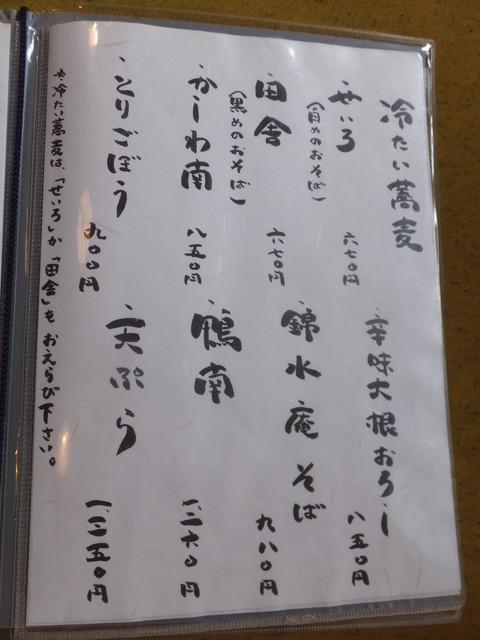 冷たい蕎麦
・せいろ
(白めのおそば)
六七〇円
・田舎
(黒めのおそば)
六七〇円
・かしわ南
八五〇円
・とりごぼう
九〇〇円
・辛味大根おろし
八五〇円
・錦水庵そば
九八〇円
・鴨南
一、二六〇円
・天ぷら
一、二五〇円
※冷たい蕎麦は、「せいろ」か「田舎」をおえらび下さい。